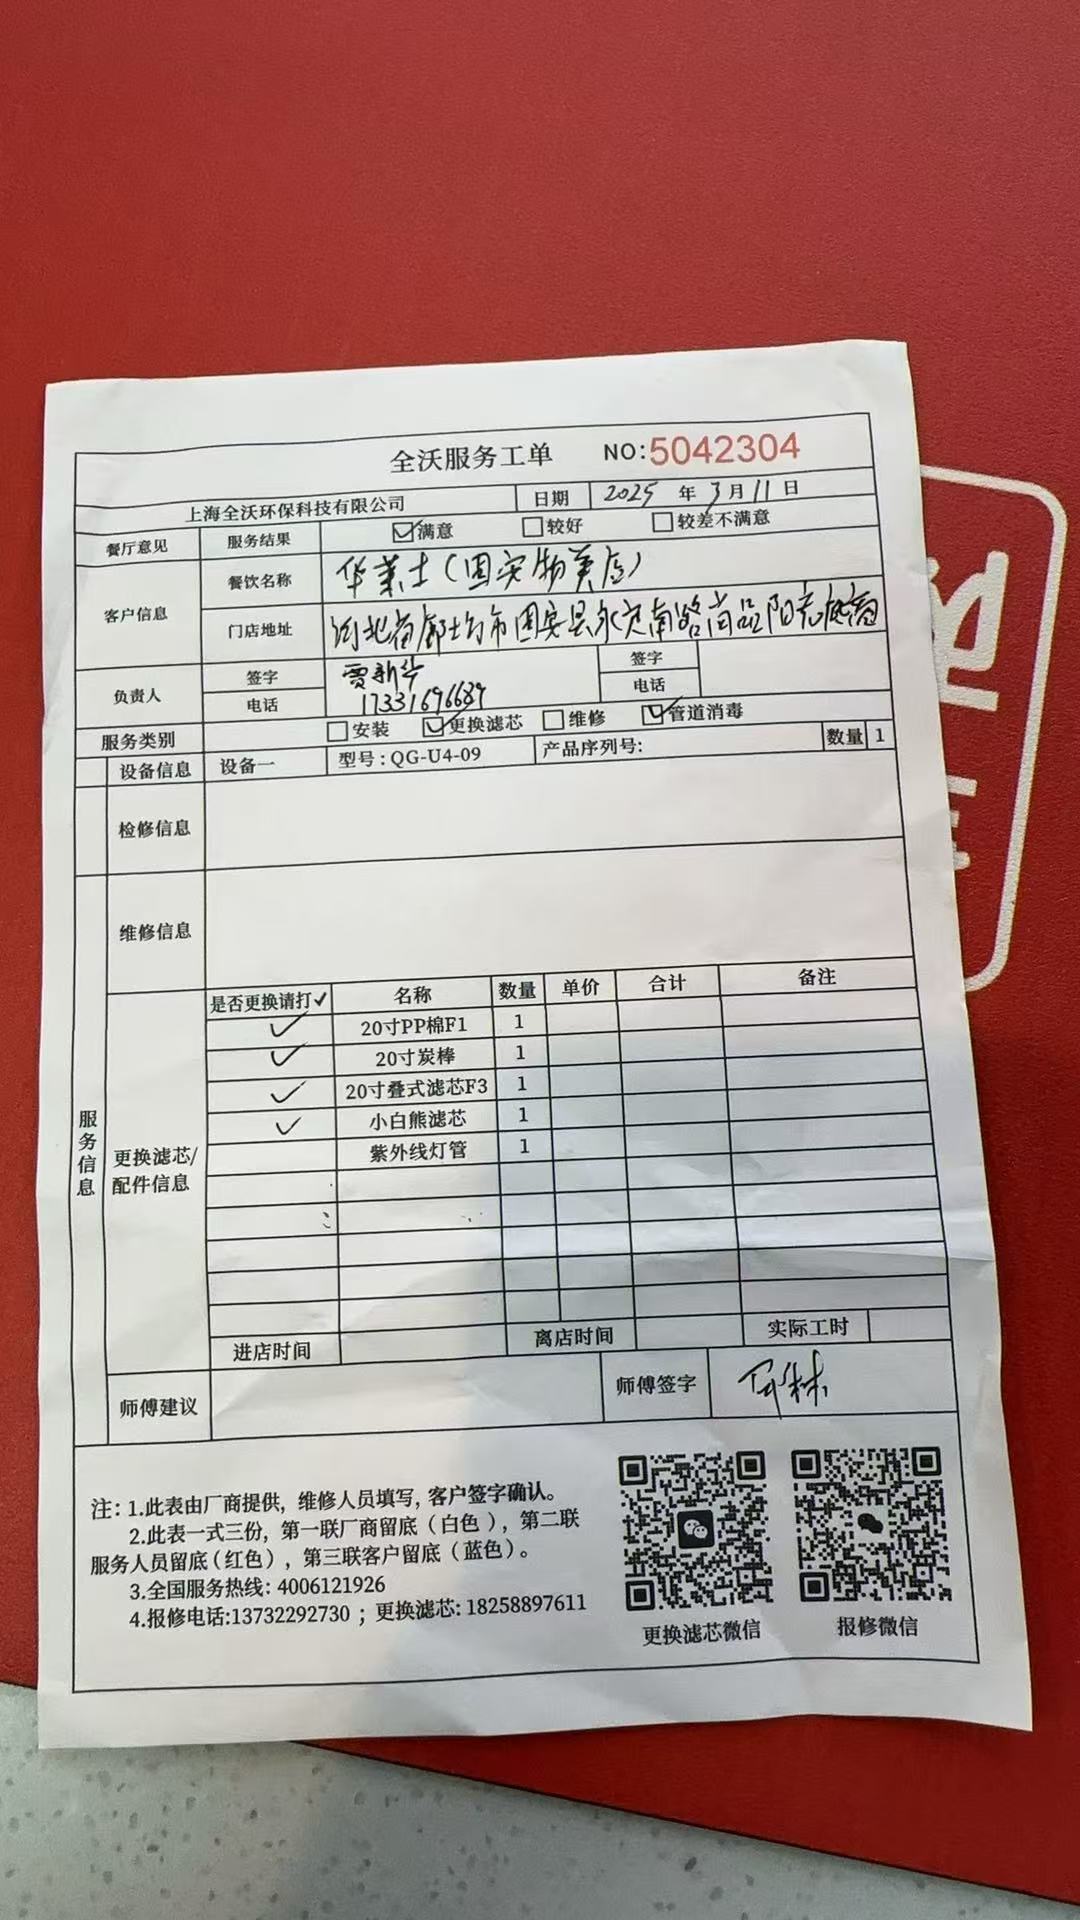 全沃服务工单 NO:5042304
上海全沃环保科技有限公司 日期 2025年3月11日
餐厅意见 服务结果 ☑满意 □较好 □较差不满意
客户信息 餐饮名称 华莱士(固安物美店)
门店地址 河北省廊坊市固安县永定南路尚品阳光底商
负责人 签字 贾新华 签字
电话 17331696689 电话
服务类别 □安装 ☑更换滤芯 □维修 ☑管道消毒
服务信息
设备信息 设备一 型号:QG-U4-09 产品序列号: 数量 1
检修信息
维修信息
更换滤芯/配件信息
是否更换请打✓ 名称 数量 单价 合计 备注
✓ 20寸PP棉F1 1
✓ 20寸炭棒 1
✓ 20寸叠式滤芯F3 1
✓ 小白熊滤芯 1
紫外线灯管 1
进店时间 离店时间 实际工时
师傅建议 师傅签字
注:1.此表由厂商提供,维修人员填写,客户签字确认。
2.此表一式三份,第一联厂商留底(白色),第二联
服务人员留底(红色),第三联客户留底(蓝色)。
3.全国服务热线:4006121926
4.报修电话:13732292730;更换滤芯:18258897611
更换滤芯微信 报修微信